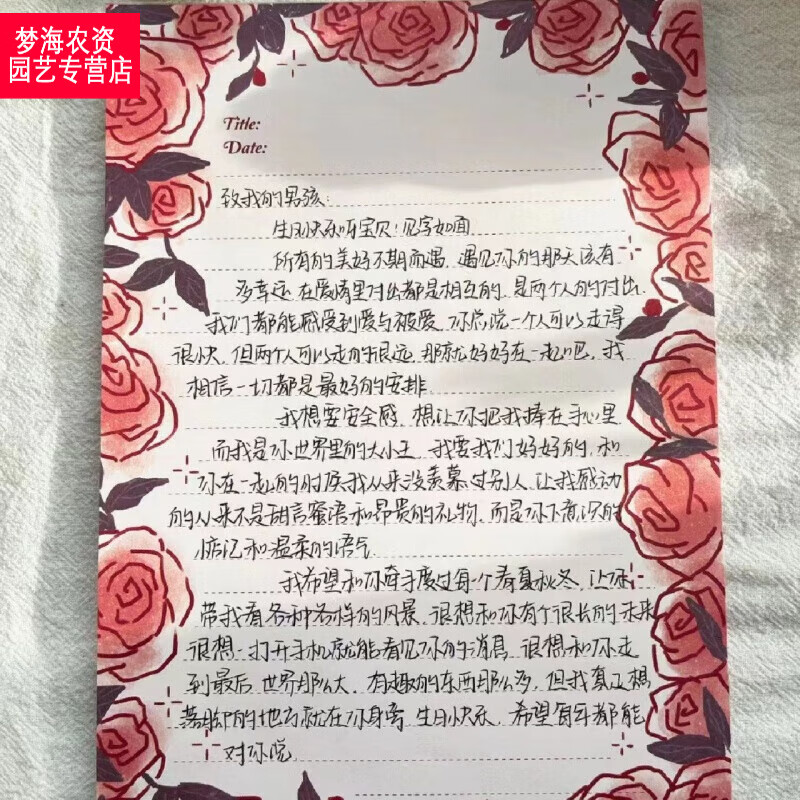 梦海农资
园艺专营店
Title:
Date:
致我的男孩:
生日快乐呀宝贝!见字如面
所有的美好不期而遇,遇见你的那天该有
多幸运 在爱情里付出都是相互的,是两个人的付出
我们都能感受到爱与被爱,你总说一个人可以走得
很快,但两个人可以走的很远,那就好好在一起吧,我
相信一切都是最好的安排
我想要安全感,想让你把我捧在手心里
而我是你世界里的大小王,我要我们好好的,和
你在一起的时候我从来没羡慕过别人,让我感动
的从来不是甜言蜜语和昂贵的礼物,而是你下意识的
惦记和温柔的语气
我希望和你牵手度过每一个春夏秋冬,让你
带我看各种各样的风景,很想和你有个很长的未来
很想一打开手机就能看见你的消息,很想和你走
到最后,世界那么大,有趣的东西那么多,但我真正想
落脚的地方就在你身旁 生日快乐,希望每年都能
对你说